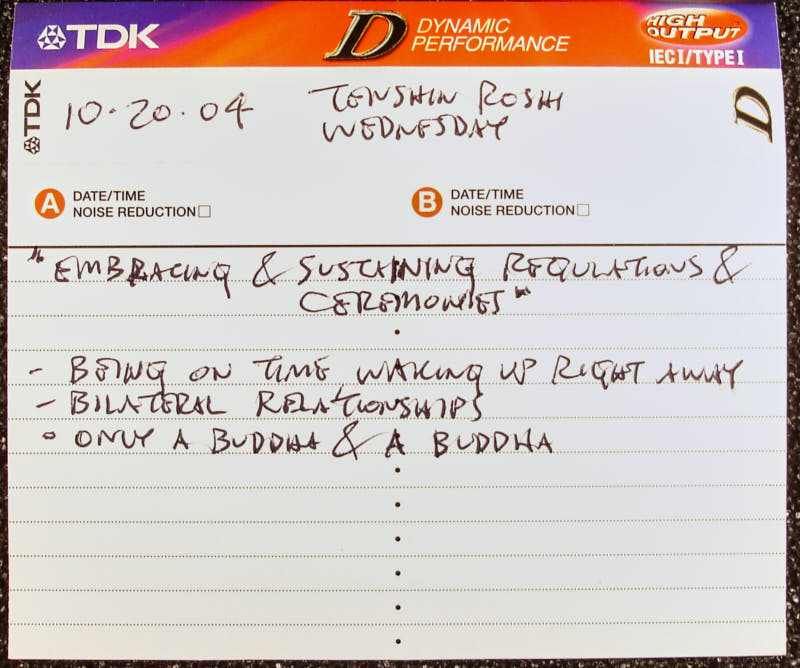 TDK D DYNAMIC PERFORMANCE HIGH OUTPUT
IEC I/TYPE I
TDK
D
10.20.04 TENSHIN ROSHI
WEDNESDAY
A DATE/TIME
NOISE REDUCTION
B DATE/TIME
NOISE REDUCTION
"EMBRACING & SUSTAINING REGULATIONS &
CEREMONIES"
- BEING ON TIME WAKING UP RIGHT AWAY
- BILATERAL RELATIONSHIPS
• ONLY A BUDDHA & A BUDDHA